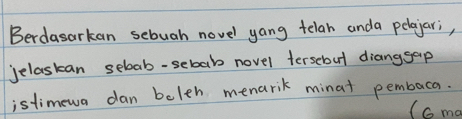 Berdasarkan sebuah novel yang telah anda pelajari,
jelaskan sebab-sebab novel tersebut dianggap
istimewa dan boleh menarik minat pembaca.
(6 ma